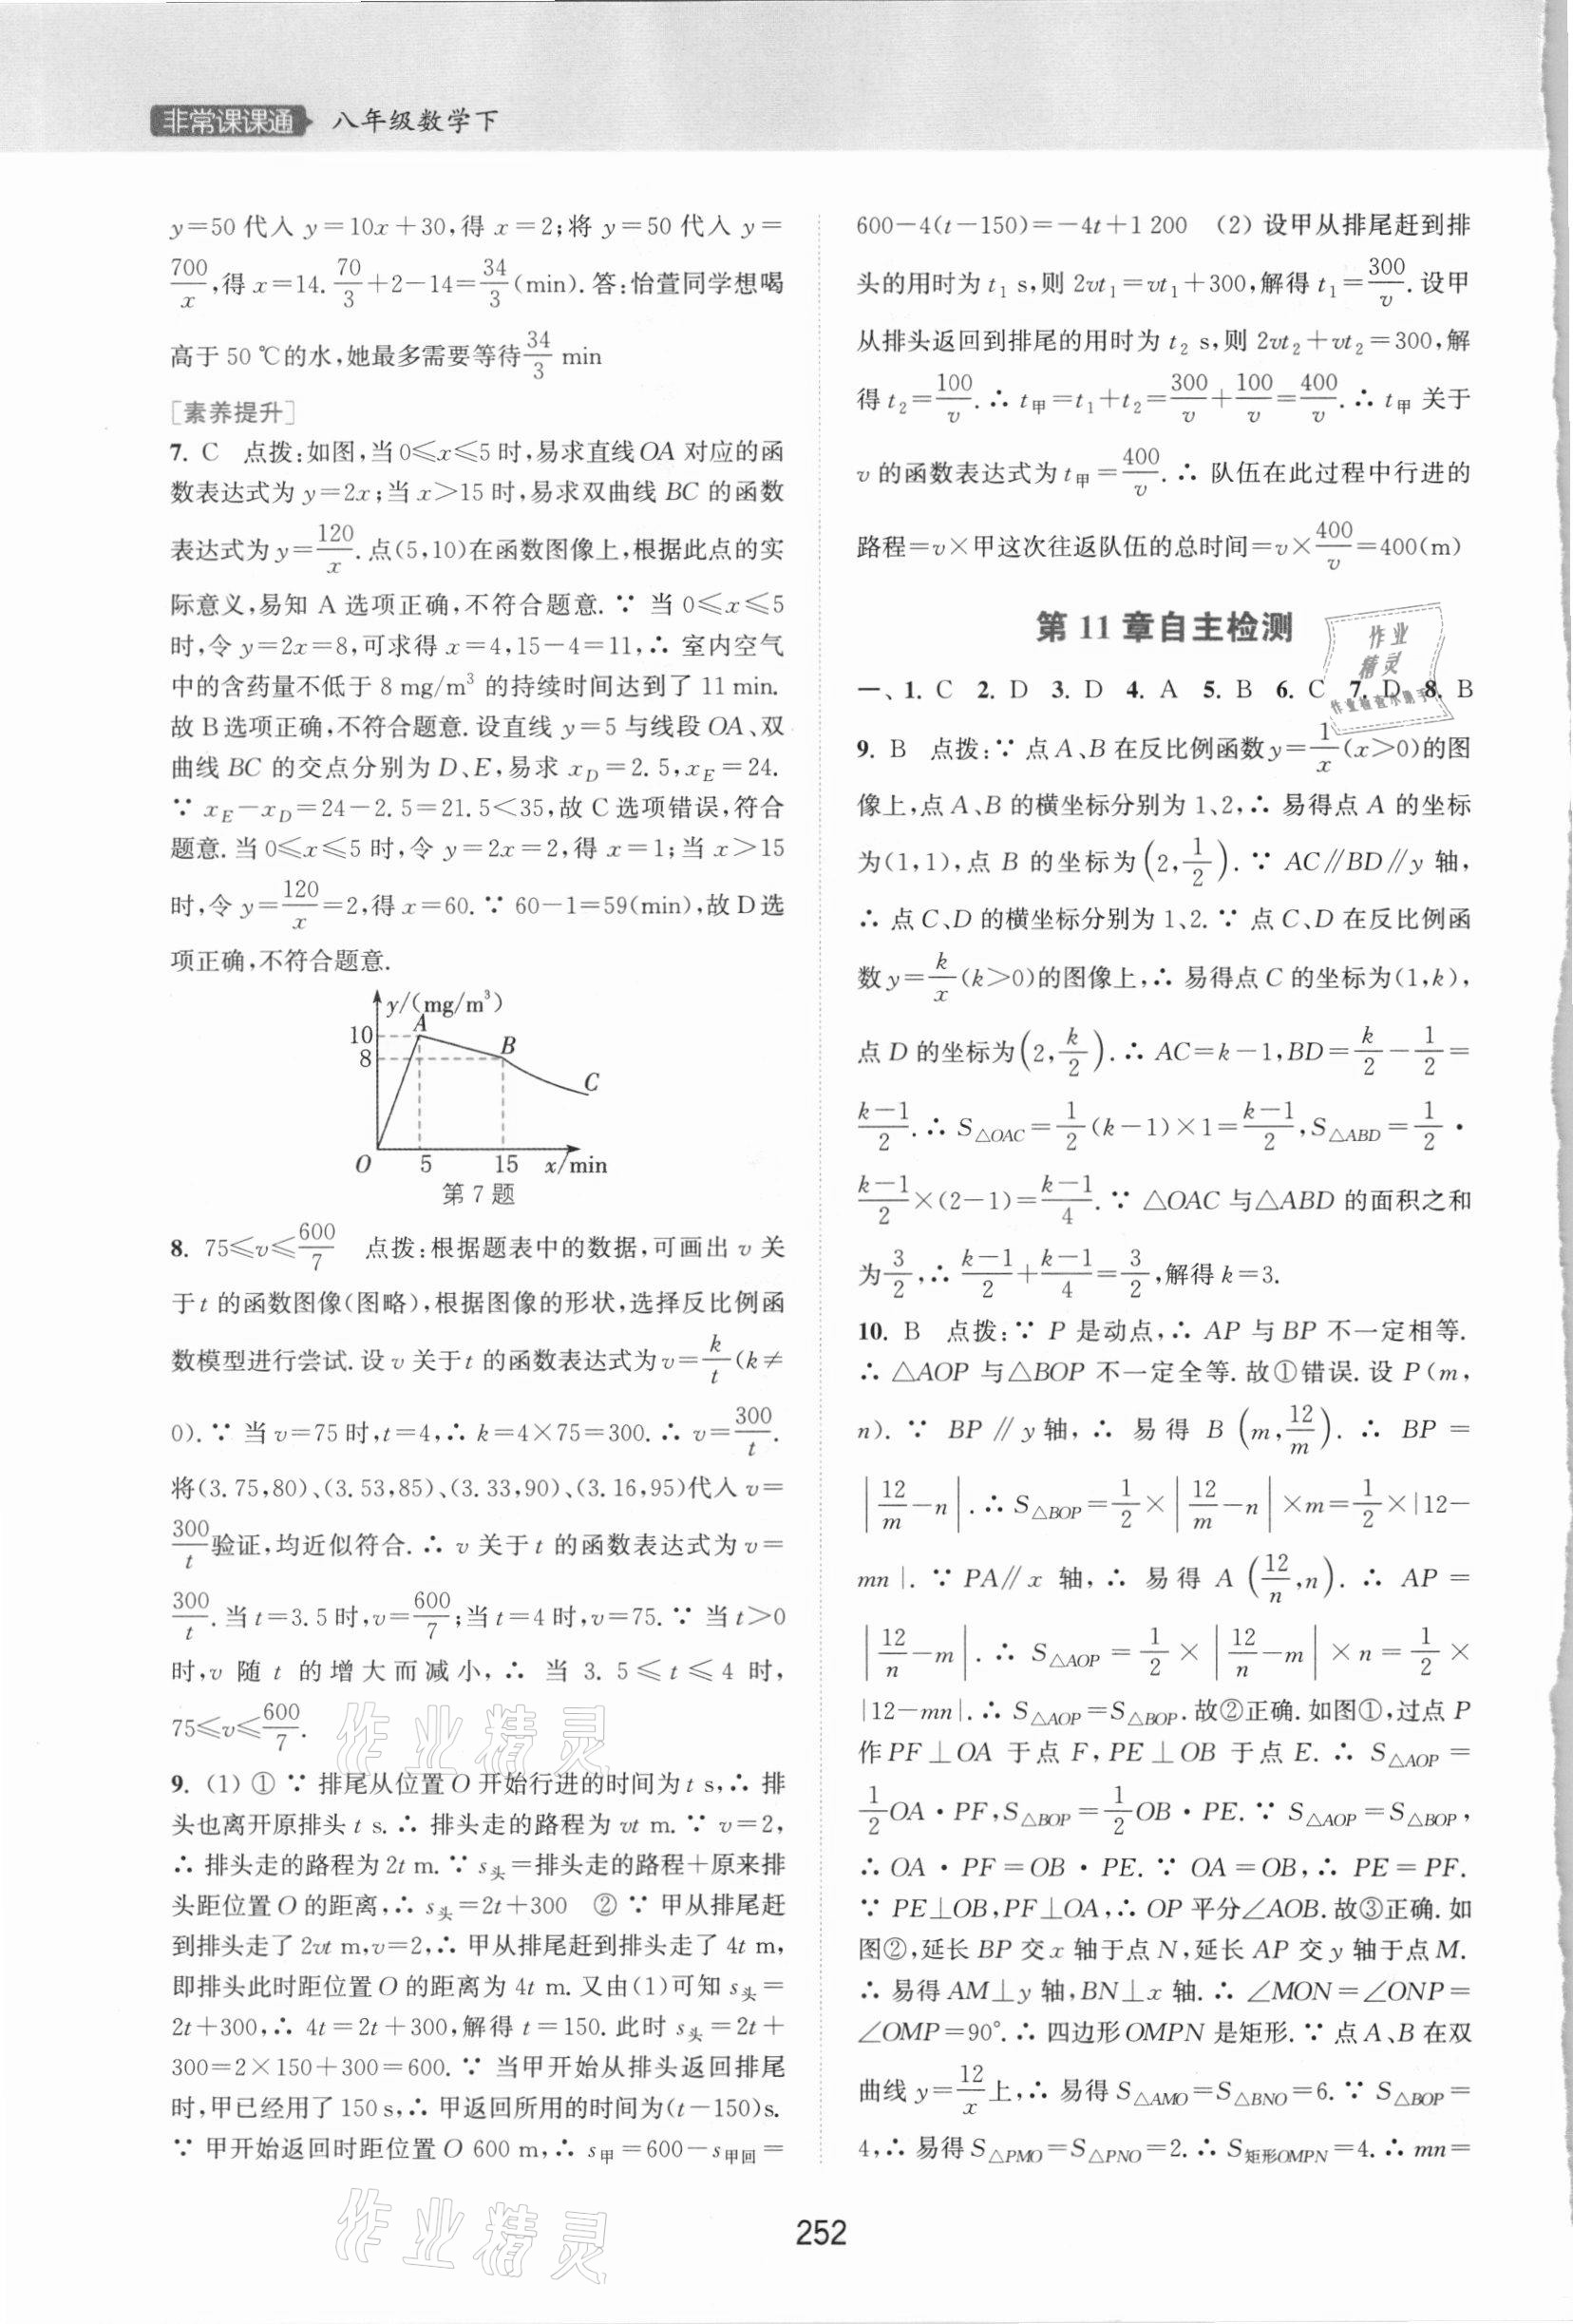 非常课课通 八年级数学下
y=50 代入 y=10x+30,得 x=2;将 y=50 代入 y=
700/x,得 x=14. 70/3+2-14=34/3(min). 答:怡萱同学想喝
高于 50 ℃的水,她最多需要等待34/3 min
[素养提升]
7. C 点拨:如图,当 0≤x≤5 时,易求直线OA 对应的函
数表达式为 y=2x;当 x>15 时,易求双曲线 BC 的函数
表达式为 y=120/x. 点(5,10)在函数图像上,根据此点的实
际意义,易知 A 选项正确,不符合题意. ∵ 当 0≤x≤5
时,令 y=2x=8,可求得 x=4,15-4=11,∴ 室内空气
中的含药量不低于 8 mg/m³ 的持续时间达到了 11 min.
故 B选项正确,不符合题意. 设直线 y=5 与线段OA、双
曲线 BC 的交点分别为 D、E,易求 x_D=2.5,x_E=24.
∵ x_E-x_D=24-2.5=21.5<35,故 C 选项错误,符合
题意. 当 0≤x≤5 时,令 y=2x=2,得 x=1;当 x>15
时,令 y=120/x=2,得 x=60. ∵ 60-1=59(min),故 D 选
项正确,不符合题意.
y/(mg/m³)
A
10
B
8
C
O 5 15 x/min
第 7 题
8. 75≤v≤600/7 点拨:根据题表中的数据,可画出 v 关
于 t 的函数图像(图略),根据图像的形状,选择反比例函
数模型进行尝试. 设 v 关于 t 的函数表达式为 v=k/t(k≠
0). ∵ 当 v=75 时,t=4,∴ k=4×75=300. ∴ v=300/t.
将(3.75,80)、(3.53,85)、(3.33,90)、(3.16,95)代入 v=
300/t验证,均近似符合. ∴ v 关于 t 的函数表达式为 v=
300/t. 当 t=3.5 时,v=600/7;当 t=4 时,v=75. ∵ 当 t>0
时,v 随 t 的增大而减小,∴ 当 3.5≤t≤4 时,
75≤v≤600/7.
9. (1) ① ∵ 排尾从位置 O 开始行进的时间为 t s,∴ 排
头也离开原排头 t s. ∴ 排头走的路程为 vt m. ∵ v=2,
∴ 排头走的路程为 2t m. ∵ s头=排头走的路程+原来排
头距位置 O 的距离,∴ s头=2t+300 ② ∵ 甲从排尾赶
到排头走了 2vt m,v=2,∴ 甲从排尾赶到排头走了 4t m,
即排头此时距位置 O 的距离为 4t m. 又由(1)可知 s头=
2t+300,∴ 4t=2t+300,解得 t=150. 此时 s头=2t+
300=2×150+300=600. ∵ 当甲开始从排头返回排尾
时,甲已经用了 150 s,∴ 甲返回所用的时间为(t-150)s.
∵ 甲开始返回时距位置 O 600 m,∴ s甲=600-s甲回=
600-4(t-150)=-4t+1 200 (2) 设甲从排尾赶到排
头的用时为 t₁ s,则 2vt₁=vt₁+300,解得 t₁=300/v. 设甲
从排头返回到排尾的用时为 t₂ s,则 2vt₂+vt₂=300,解
得 t₂=100/v. ∴ t甲=t₁+t₂=300/v+100/v=400/v. ∴ t甲 关于
v 的函数表达式为 t甲=400/v. ∴ 队伍在此过程中行进的
路程=v×甲这次往返队伍的总时间=v×400/v=400(m)
第 11 章自主检测
作业
精灵
作业检查小助手
一、1. C 2. D 3. D 4. A 5. B 6. C 7. D 8. B
9. B 点拨:∵ 点 A、B 在反比例函数 y=1/x(x>0)的图
像上,点 A、B 的横坐标分别为 1、2,∴ 易得点 A 的坐标
为(1,1),点 B 的坐标为(2,1/2). ∵ AC∥BD∥y 轴,
∴ 点 C、D 的横坐标分别为 1、2. ∵ 点 C、D 在反比例函
数 y=k/x(k>0)的图像上,∴ 易得点 C 的坐标为(1,k),
点 D 的坐标为(2,k/2). ∴ AC=k-1,BD=k/2-1/2=
(k-1)/2. ∴ S△OAC=1/2(k-1)×1=(k-1)/2,S△ABD=1/2·
(k-1)/2×(2-1)=(k-1)/4. ∵ △OAC 与△ABD 的面积之和
为3/2,∴ (k-1)/2+(k-1)/4=3/2,解得 k=3.
10. B 点拨:∵ P 是动点,∴ AP 与 BP 不一定相等.
∴ △AOP 与△BOP 不一定全等. 故①错误. 设 P(m,
n). ∵ BP∥y 轴,∴ 易得 B (m,12/m). ∴ BP=
|12/m-n|. ∴ S△BOP=1/2×|12/m-n|×m=1/2×|12-
mn|. ∵ PA∥x 轴,∴ 易得 A (12/n,n). ∴ AP=
|12/n-m|. ∴ S△AOP=1/2×|12/n-m|×n=1/2×
|12-mn|. ∴ S△AOP=S△BOP. 故②正确. 如图①,过点 P
作 PF⊥OA 于点 F,PE⊥OB 于点 E. ∴ S△AOP=
1/2OA·PF,S△BOP=1/2OB·PE. ∵ S△AOP=S△BOP,
∴ OA·PF=OB·PE. ∵ OA=OB,∴ PE=PF.
∵ PE⊥OB,PF⊥OA,∴ OP 平分∠AOB. 故③正确. 如
图②,延长 BP 交 x 轴于点 N,延长 AP 交 y 轴于点 M.
∴ 易得 AM⊥y 轴,BN⊥x 轴. ∴ ∠MON=∠ONP=
∠OMP=90°. ∴ 四边形 OMPN 是矩形. ∵ 点 A、B 在双
曲线 y=12/x上,∴ 易得 S△AMO=S△BNO=6. ∵ S△BOP=
4,∴ 易得 S△PMO=S△PNO=2. ∴ S矩形OMPN=4. ∴ mn=
作业精灵
作业精灵
252